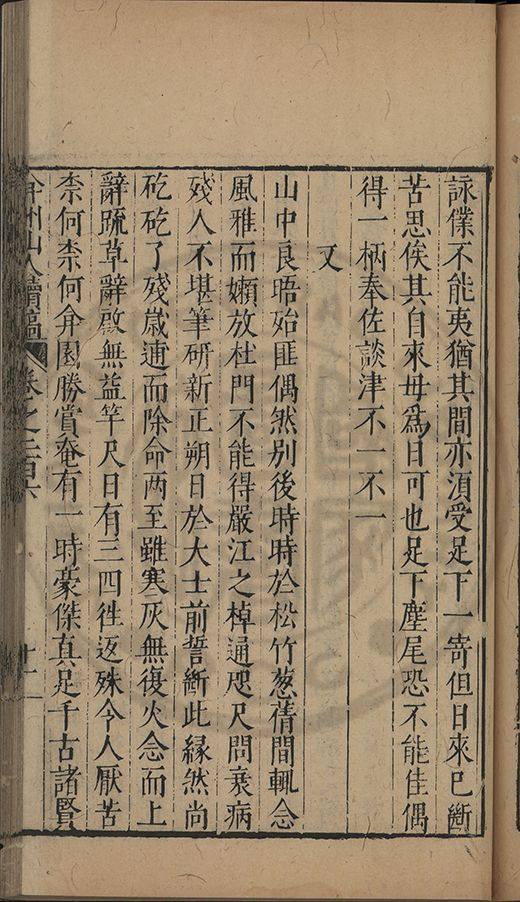 詠僕不能夷猶其間亦須受足下一寄但日來已斷
苦思俟其自來毋爲日可也足下麈尾恐不能佳偶
得一柄奉佐談津不一不一
又
山中良晤殆匪偶然別後時時於松竹葱蒨間輒念
風雅而嬾放杜門不能得嚴江之棹通咫尺問衰病
殘人不堪筆研新正朔日於大士前誓斷此緣然尚
矻矻了殘歲逋而除命两至雖寒灰無復火念而上
辭疏草辭啟無益竿尺日有三四徃返殊令人厭苦
柰何柰何弇園勝賞奄有一時豪傑真足千古諸賢
弇州山人續稿 卷之二百六 十二